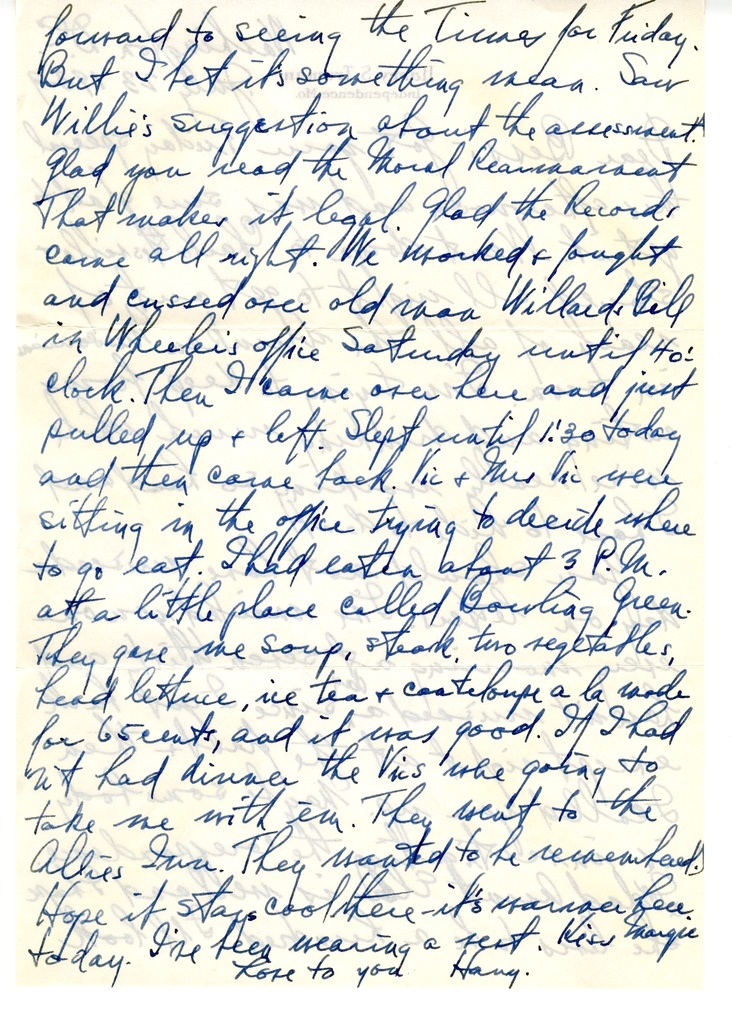 forward to seeing the Times for Friday.
But I bet it's something mean. Saw
Willie's suggestion about the assessment.
Glad you read the Moral Rearmament
That makes it legal. Glad the Records
came all right. We worked & fought
and cussed over old man Willards Bill
in Wheeler's office Saturday until 4 o'-
clock. Then I came over here and just
pulled up & left. Slept until 1:30 today
and then came back. Vic & Mrs Vic were
sitting in the office trying to decide where
to go eat. I had eaten about 3 P.M.
at a little place called Bowling Green.
They gave me soup, steak, two vegetables,
head lettuce, ice tea & canteloupe a la mode
for 65 cents, and it was good. If I had
n't had dinner the Vics were going to
take me with em. They went to the
Allies Inn. They wanted to be remembered.
Hope it stays cool there - it's warmer here
today. I've been wearing a vest. Kiss Margie
Love to you Harry.